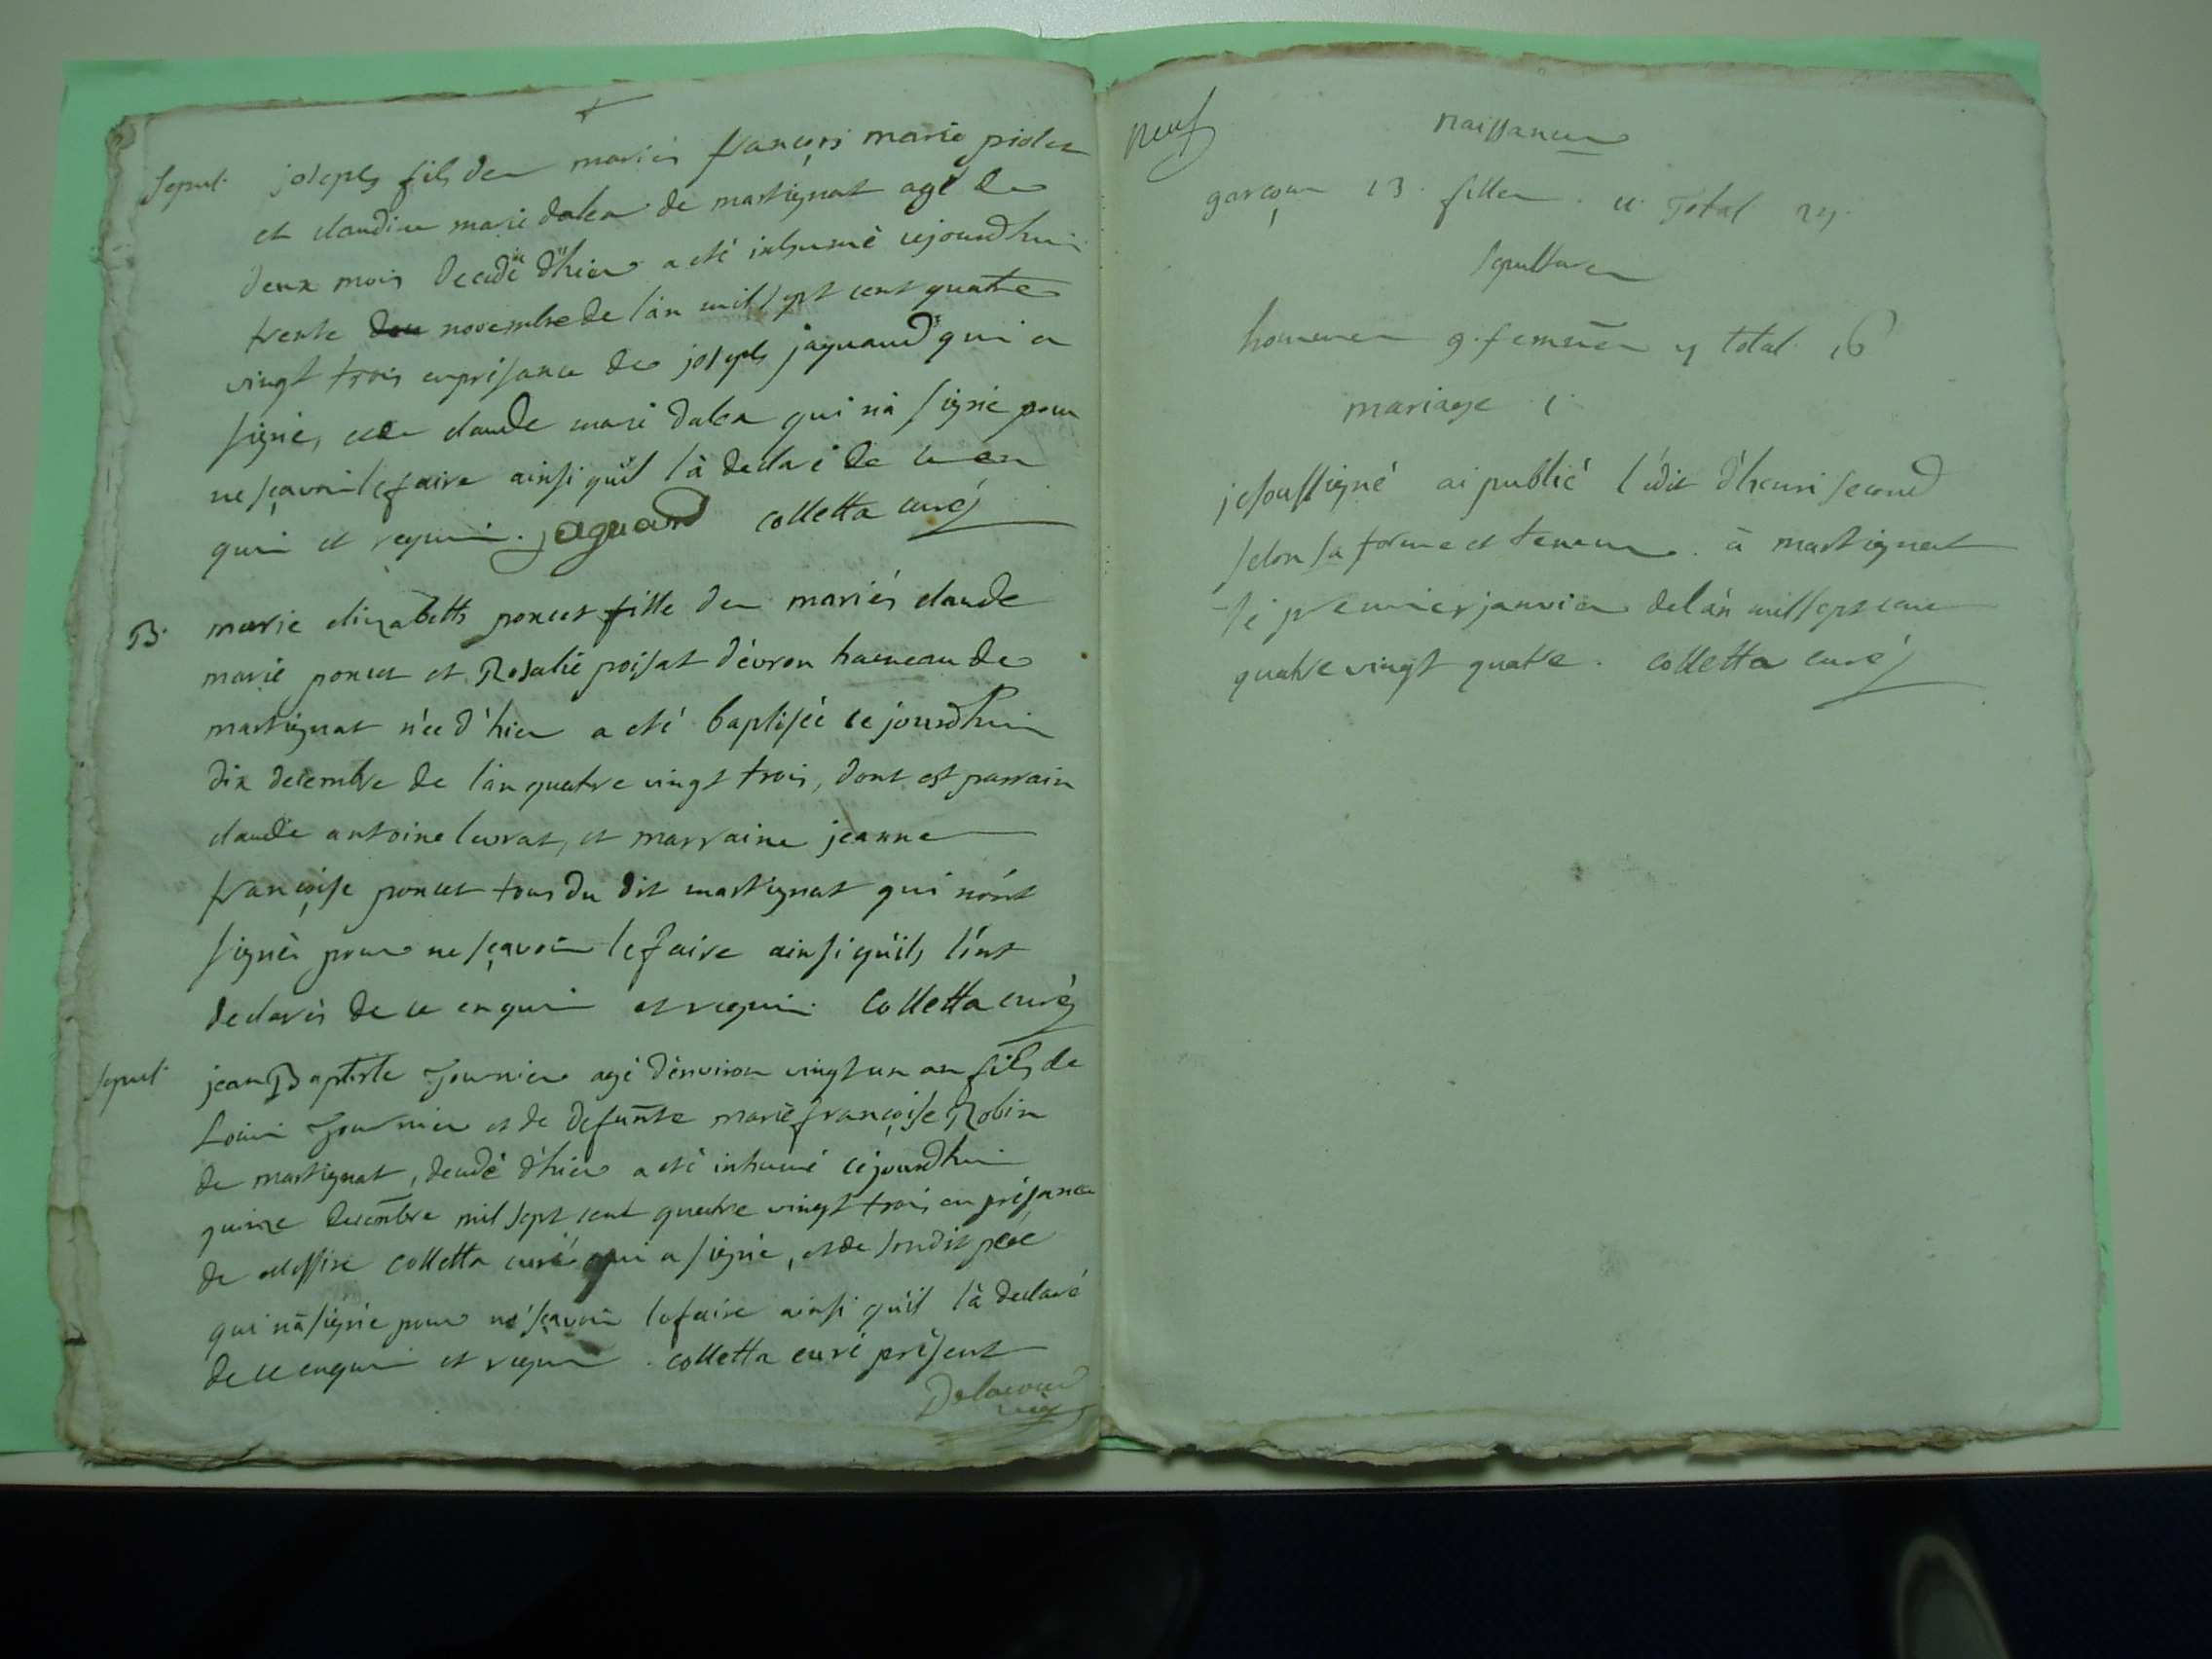 Sepul. joseph fils des mariés françois marie piolet
et claudine marie dalea de martignat agé de
deux mois decedé d'hier a eté inhumé cejourdhui
trente novembre de l'an mil sept cent quatre
vingt trois en présance de joseph jaguand qui a
signé, et de claude marie dalea qui n'a signé pour
ne sçavoir le faire ainsi qu'il l'a declaré de ce en
quis et requis. jaguand colletta curé
B. marie elizabeth poncet fille des mariés claude
marie poncet et Rosalie poisat d'évron hameau de
martignat née d'hier a eté baptisée ce jourdhui
dix decembre de l'an quatre vingt trois, dont est parrain
claude antoine levrat, et marraine jeanne
françoise poncet tous du dit martignat qui n'ont
signés pour ne sçavoir le faire ainsi qu'ils l'ont
declarés de ce enquis et requis. Colletta curé
Sepul. jean Baptiste Journier agé d'environ vingt un an fils de
Louis Journier et de defunte marie françoise Robin
de martignat, decedé d'hier a eté inhumé cejourdhui
quinze decembre mil sept cent quatre vingt trois en présance
de Messire colletta curé qui a signé, et de son dit père
qui n'a signé pour ne sçavoir le faire ainsi qu'il l'a declaré
de ce enquis et requis. colletta curé présent
Delacour
vic
neuf
naissances
garçons 13. filles. 11. Total 24.
Sepultures
hommes 9. femmes 7 total. 16
mariage 1.
je soussigné ai publié l'édit d'henri second
selon sa forme et teneur. à martignat
le premier janvier de l'an mil sept cent
quatre vingt quatre. colletta curé